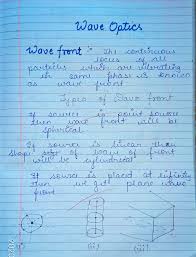 Wave Optics
Wave front :- The continuous
locus of all
particles which are vibrating
in same phase is known
as wave front
Types of Wave front
If source is point source
then wave front will be
spherical
If source is linear then
shape of wave front
will be cylindrical
If source is placed at infinity
then we get plane wave
front
(i)
(ii)
(iii)